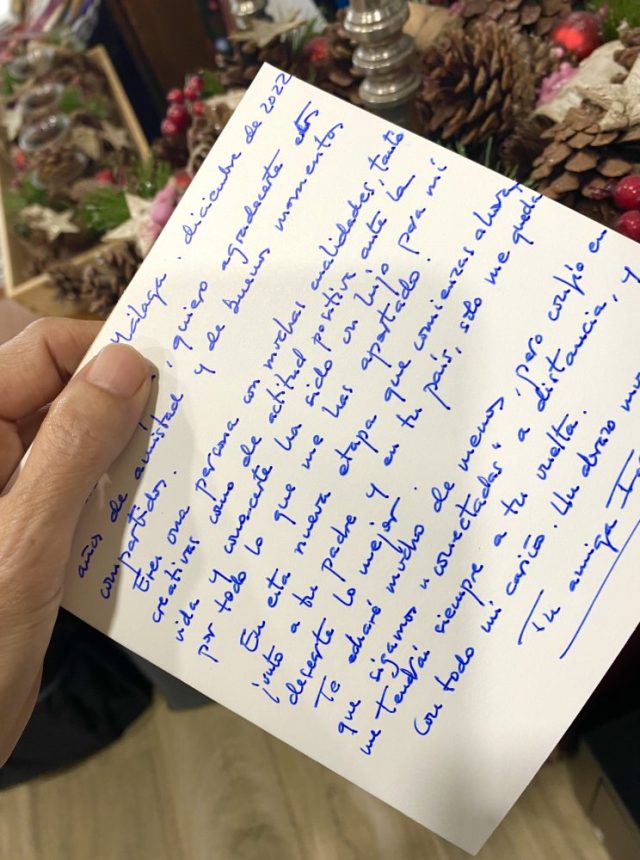 Málaga, diciembre de 2022
, quiero agradecerte estos
años de amistad y de buenos momentos
compartidos.
Eres una persona con muchas cualidades, tanto
creativas como de actitud positiva ante la
vida y conocerte ha sido un lujo para mí
por todo lo que me has aportado.
En esta nueva etapa que comienzas ahora,
junto a tu padre y en tu país, solo me queda
desearte lo mejor.
Te echaré mucho de menos, pero confío en
que sigamos "conectadas" a distancia, y
me tendrás siempre a tu vuelta.
Con todo mi cariño. Un abrazo
Tu amiga